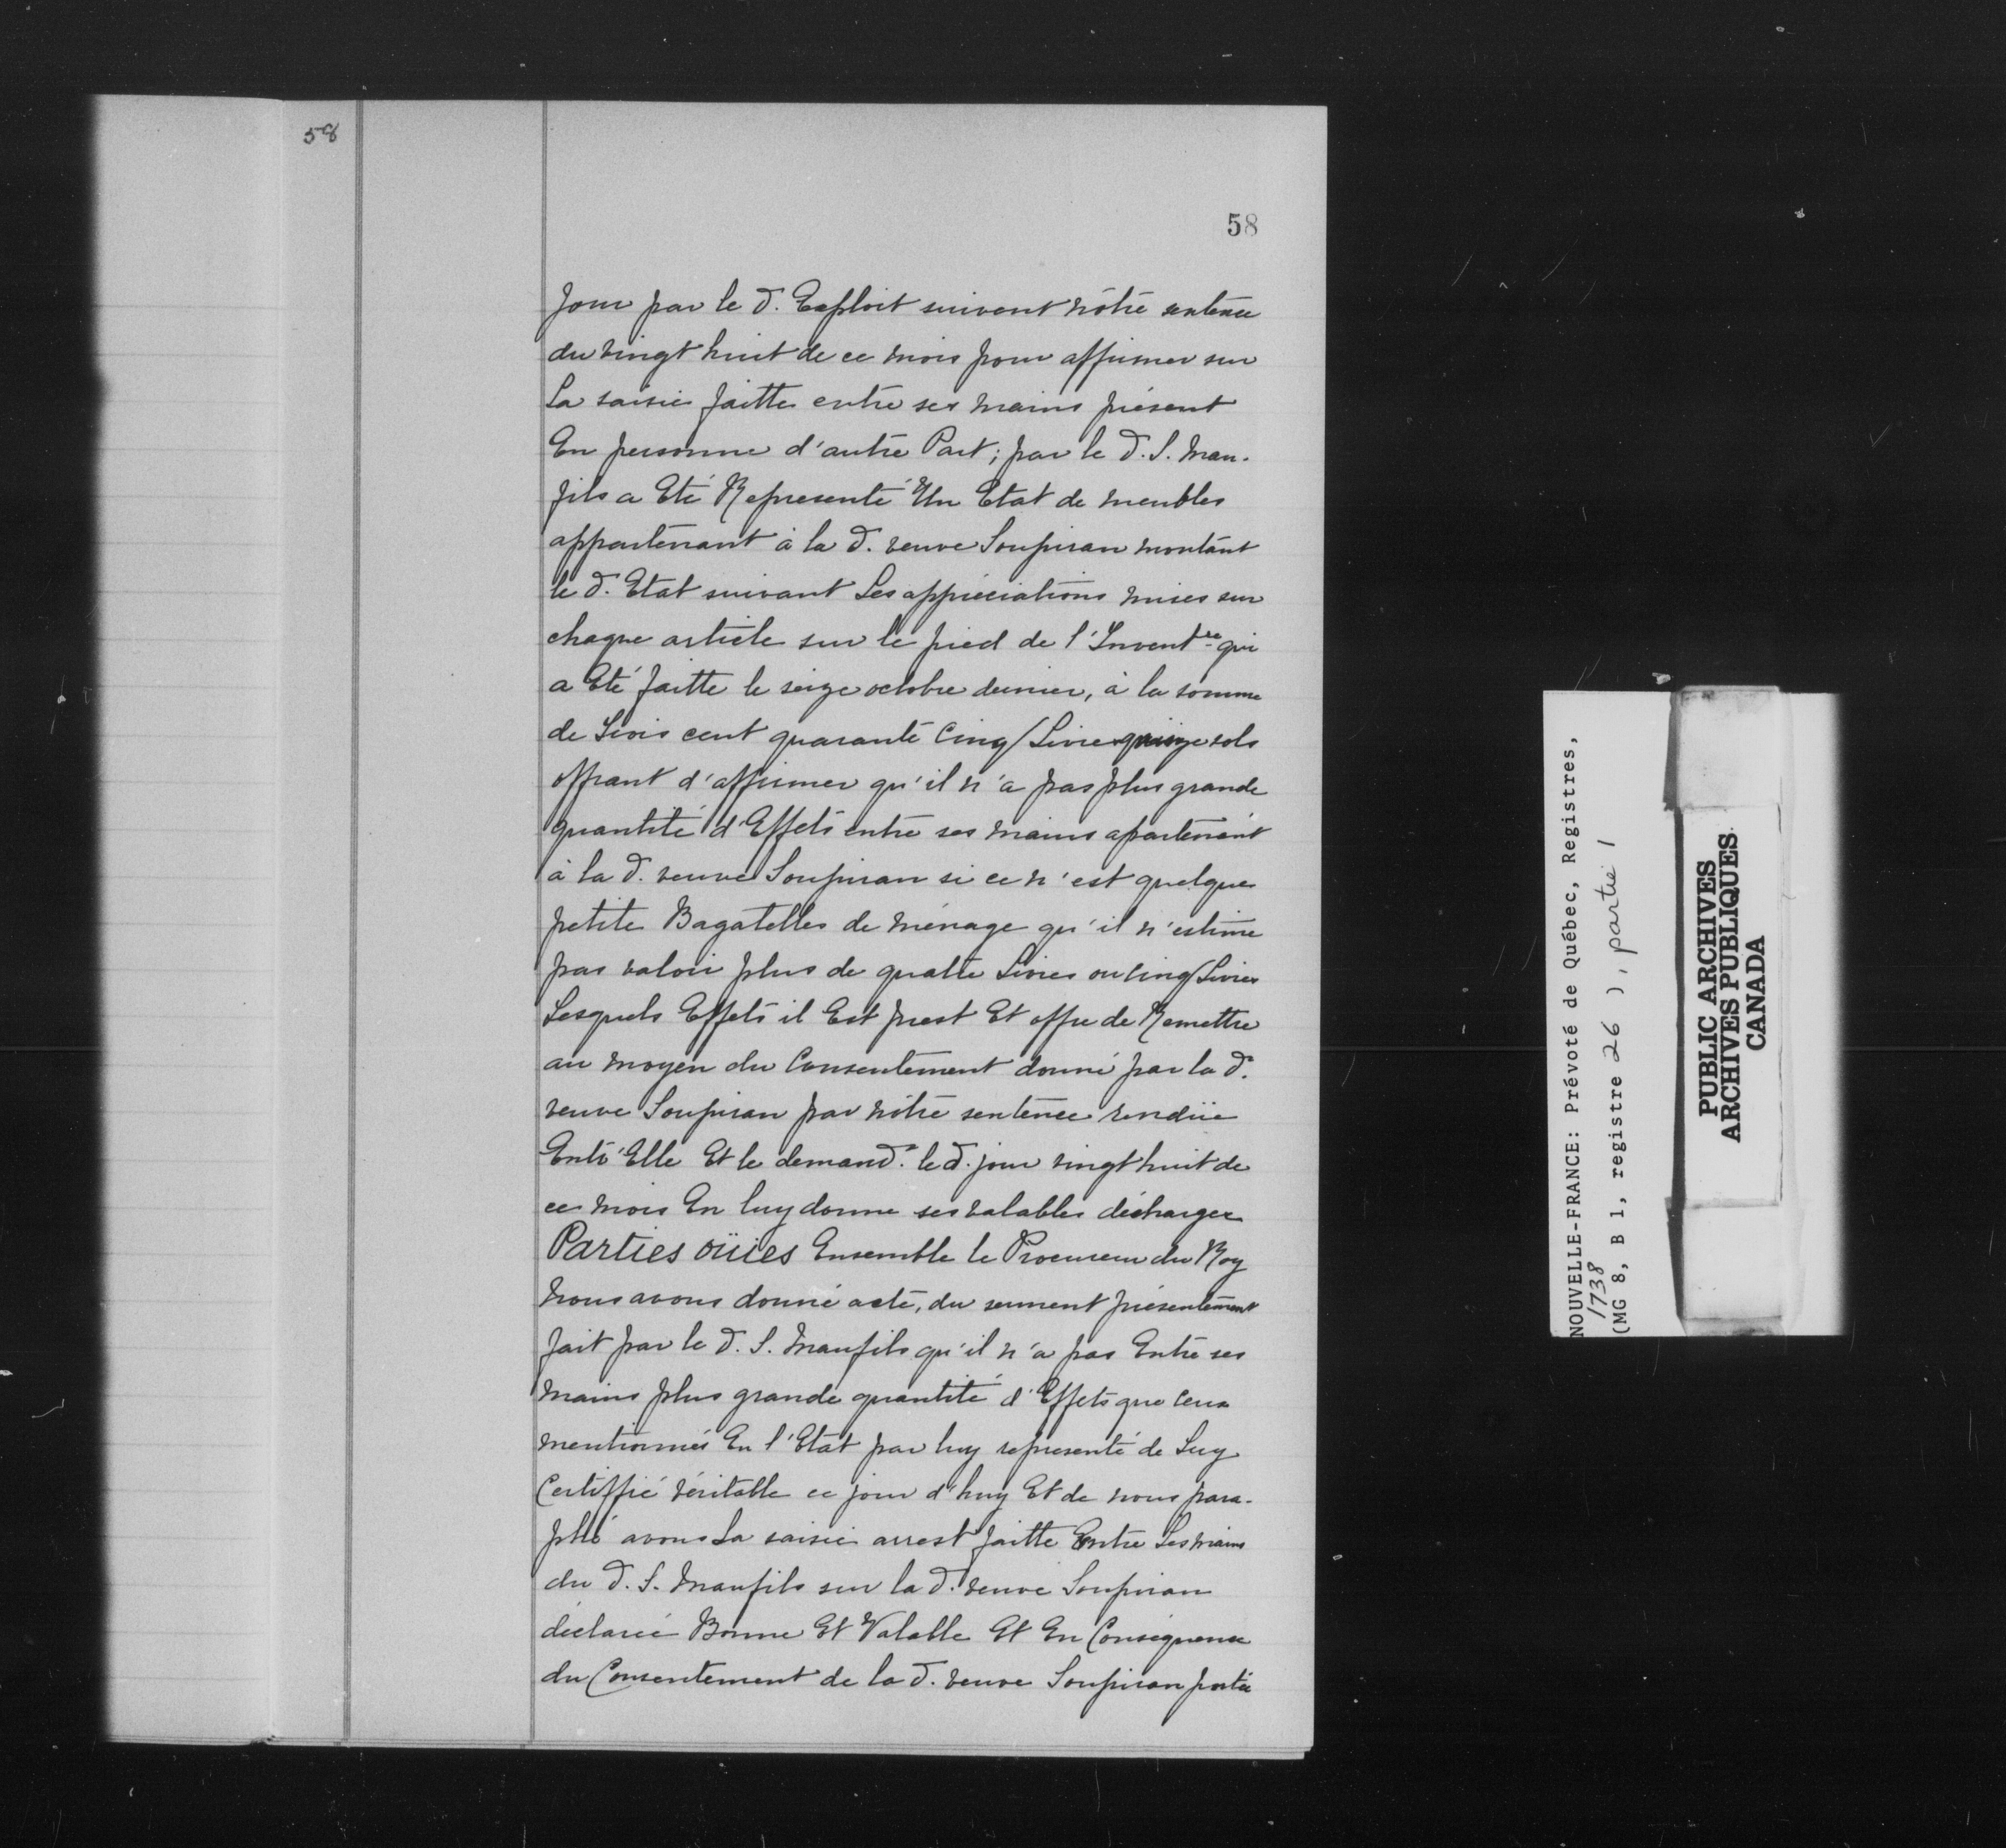 58
58
Jour par le d. Exploit suivent nôtre sentence
du vingt huit de ce mois pour affirmer sur
La saisie faitte entre ses mains présent
En personne d'autre Part; par le d. S. Mau-
fils a Eté Representé Un Etat de meubles
appartenant à la d. veuve Soupiran montant
le d. Etat suivant Les appréciations mises sur
chaque article sur le pied de l'Inventre qui
a Eté faitte le seize octobre dernier, à la somme
de Trois cent quarante Cinq Livres quinze sols
offrant d'affirmer qu'il n'a pas plus grande
quantité d'Effets entre ses mains apartenant
à la d. veuve Soupiran si ce n'est quelques
petite Bagatelles de ménage qu'il n'estime
pas valoir plus de quatre Livres ou Cinq Livres
Lesquels Effets il Est prest Et offre de Remettre
au moyen du Consentement donné par la d.
veuve Soupiran par nôtre sentence rendüe
Entr'Elle Et le demandr. le d. jour vingt huit de
ce mois En luy donne ses valables décharges
Parties oüies Ensemble le Procureur du Roy
Nous avons donné acte, du serment présentement
fait par le d. S. Maufils qu'il n'a pas Entre ses
mains plus grande quantité d'Effets que Ceux
mentionnés En l'Etat par luy representé de Luy
Certiffié véritable ce jour d'huy Et de nous para-
phé avons La saisie arrest faitte Entre Les mains
du d. S. Maufils sur la d. veuve Soupiran
déclarée Bonne Et Valable Et En Conséquence
du Consentement de la d. veuve Soupiran porté
NOUVELLE-FRANCE: Prévoté de Québec, Registres,
1738
(MG 8, B 1, registre 26 ), partie 1
PUBLIC ARCHIVES
ARCHIVES PUBLIQUES
CANADA